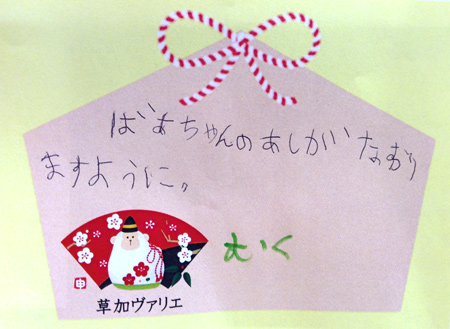 ばあちゃんのあしが なおり
ますように。
むく
草加ヴァリエ